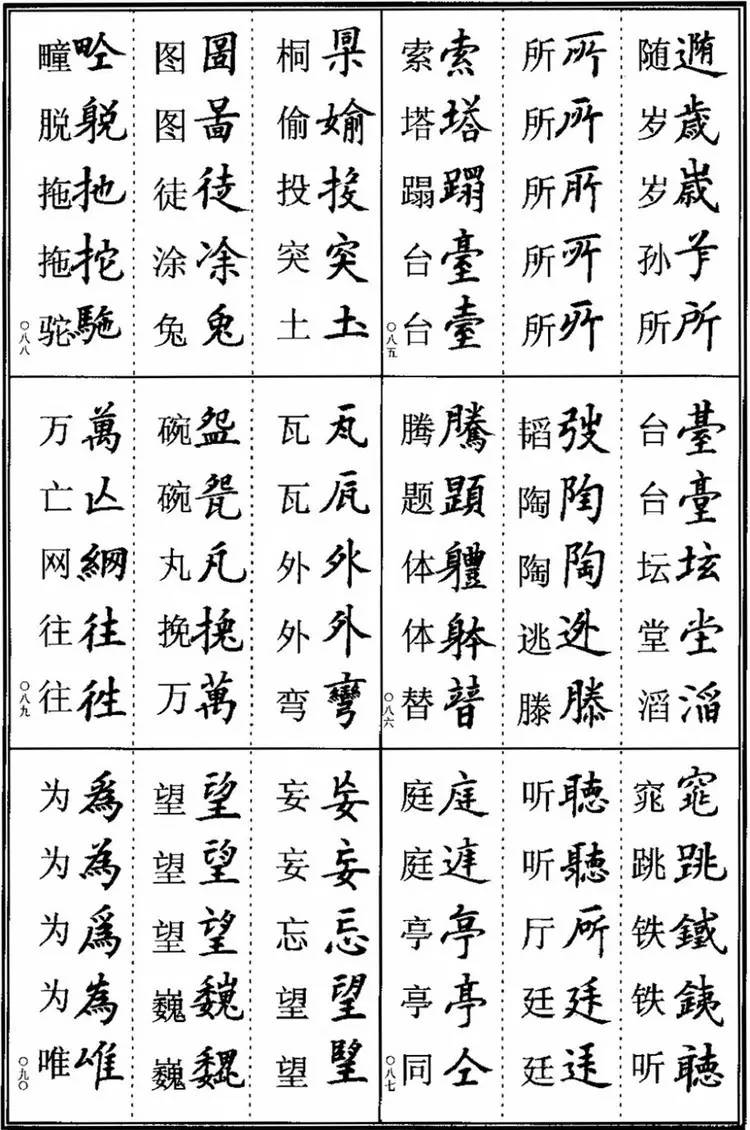 随 岁歳 岁嵗 孙 所所
所所 所所 所所 所所 所所
索索 塔塔 蹋蹋 台臺 台臺
〇八五
台臺 台臺 坛坛 堂坣 滔滔
韬弢 陶陶 陶陶 逃迯 滕滕
腾騰 题題 体軆 体躰 替朁
〇八六
窕窕 跳跳 铁鐵 铁銕 听聴
听聴 听聽 厅所 廷廷 廷
庭庭 庭 亭亭 亭亭 同仝
〇八七
桐 偷媮 投投 突突 土圡
图圖 图啚 徒徒 涂凃 兔兎
疃 脱躲 拖扡 拖拕 驼駞
〇八八
瓦瓦 瓦瓦 外外 外外 弯彎
碗盌 碗 丸凡 挽挽 万萬
万萬 亡亾 网網 往往 往徃
〇八九
妄妄 妄妄 忘忘 望望 望朢
望望 望望 望望 巍巍 巍巍
为為 为為 为爲 为為 唯唯
〇九〇